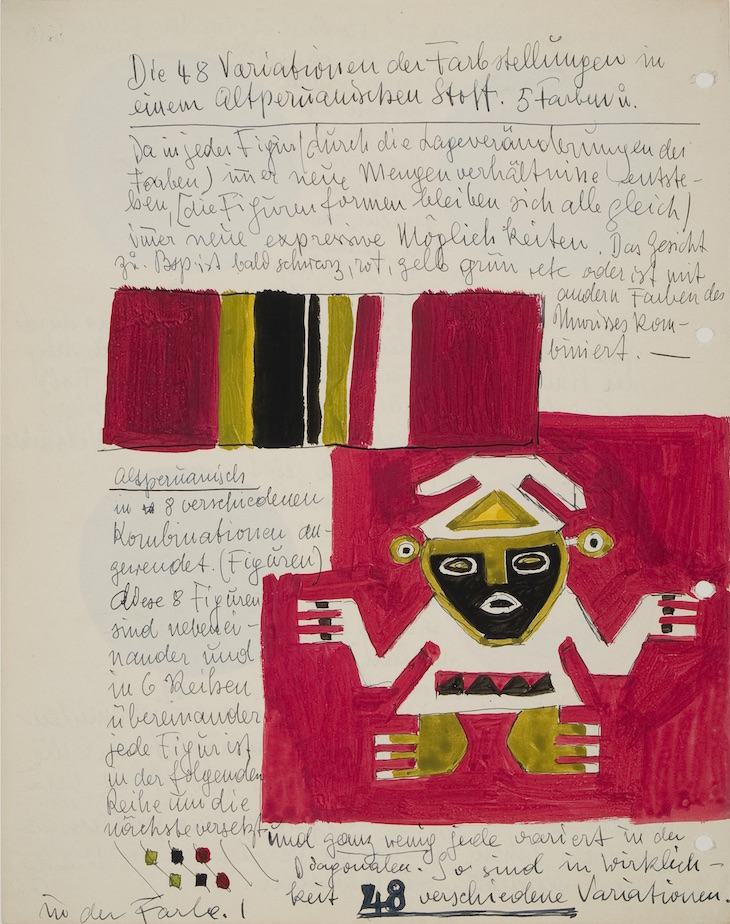 Die 48 Variationen der Farbstellungen in
einem altperuanischen Stoff. 5 Farben u.
Da in jeder Figur (durch die Lageveränderungen der
Farben) imer neue Mengenverhältnisse entste-
hen, (die Figurenformen bleiben sich alle gleich)
imer neue expressive Möglichkeiten. Das Gesicht
zu. Bsp ist bald schwarz, rot, gelb grün etc oder ist mit
andern Farben des
Umrisses kom-
biniert. —
altperuanisch
in 8 verschiedenen
Kombinationen an-
gewendet. (Figuren)
diese 8 Figuren
sind nebenei-
nander und
in 6 Reihen
übereinander
jede Figur ist
in der folgenden
Reihe um die
nächste versetzt und ganz wenig jede variert in der
Diagonalen. So sind in Wirklich-
keit 48 verschiedene Variationen.
in der Farbe. !